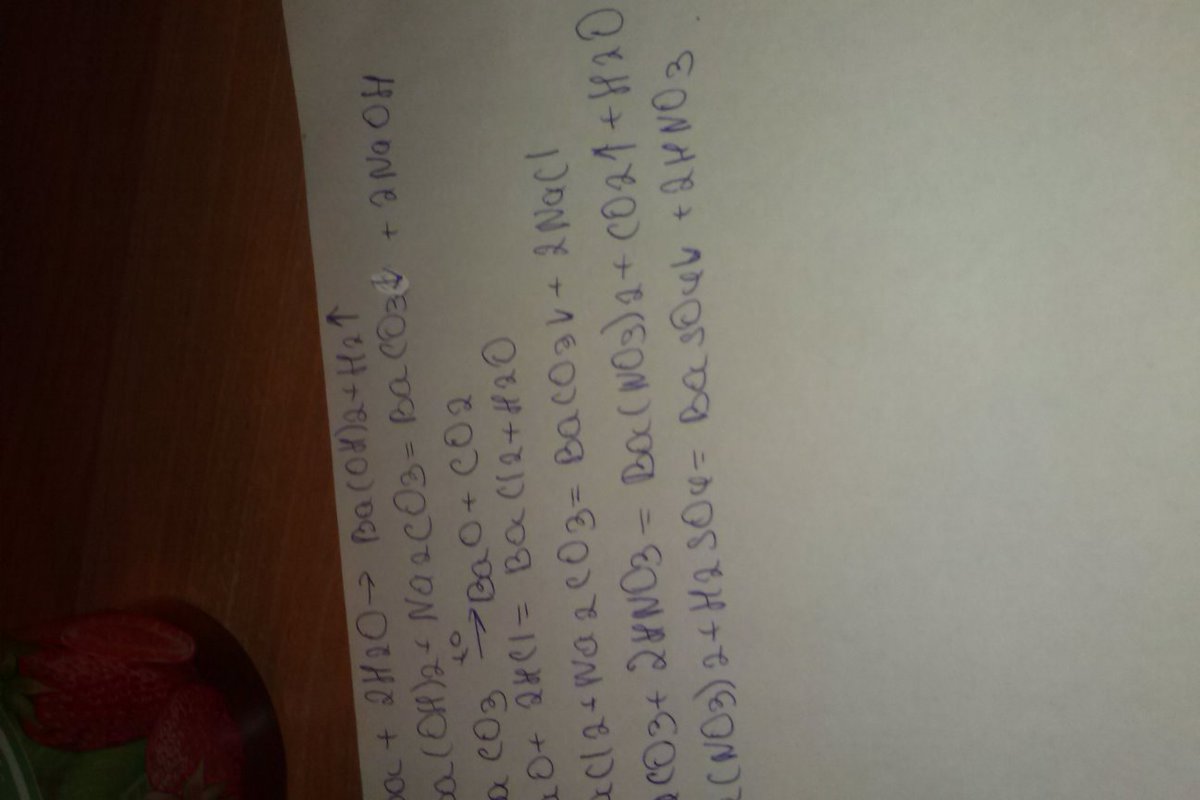 Ba + 2H2O → Ba(OH)2 + H2↑
Ba(OH)2 + Na2CO3 = BaCO3↓ + 2NaOH
aCO3 t° → BaO + CO2
aO + 2HCl = BaCl2 + H2O
aCl2 + Na2CO3 = BaCO3↓ + 2NaCl
aCO3 + 2HNO3 = Ba(NO3)2 + CO2↑ + H2O
(NO3)2 + H2SO4 = BaSO4↓ + 2HNO3